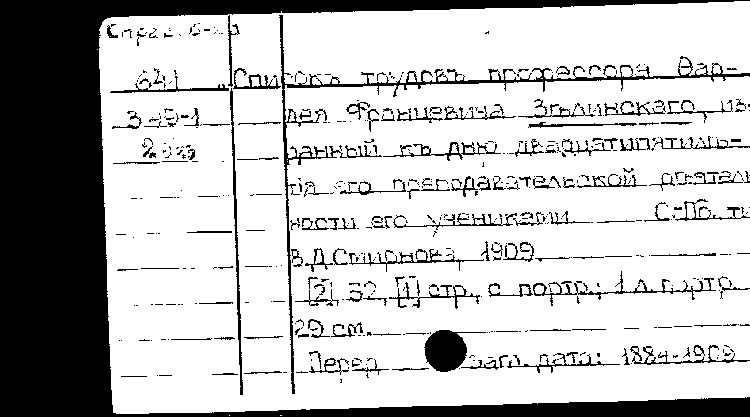 Справ. б-ка
641 „Списокъ трудовъ профессора Ѳад-
349-1 дея Францевича Зѣлинскаго, из-
данный къ дню двадцатипятилѣ-
тія его преподавательской дѣятель
ности его учениками. С.-Пб. ти
В.Д.Смирнова, 1909.
[2], 52, [1] стр., с портр.; 1 л. портр.
29 см.
Перед загл. дата: 1884-1909